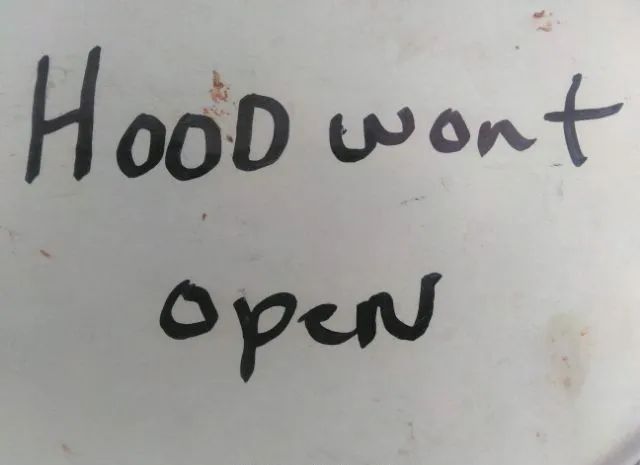 HOOD wont
open